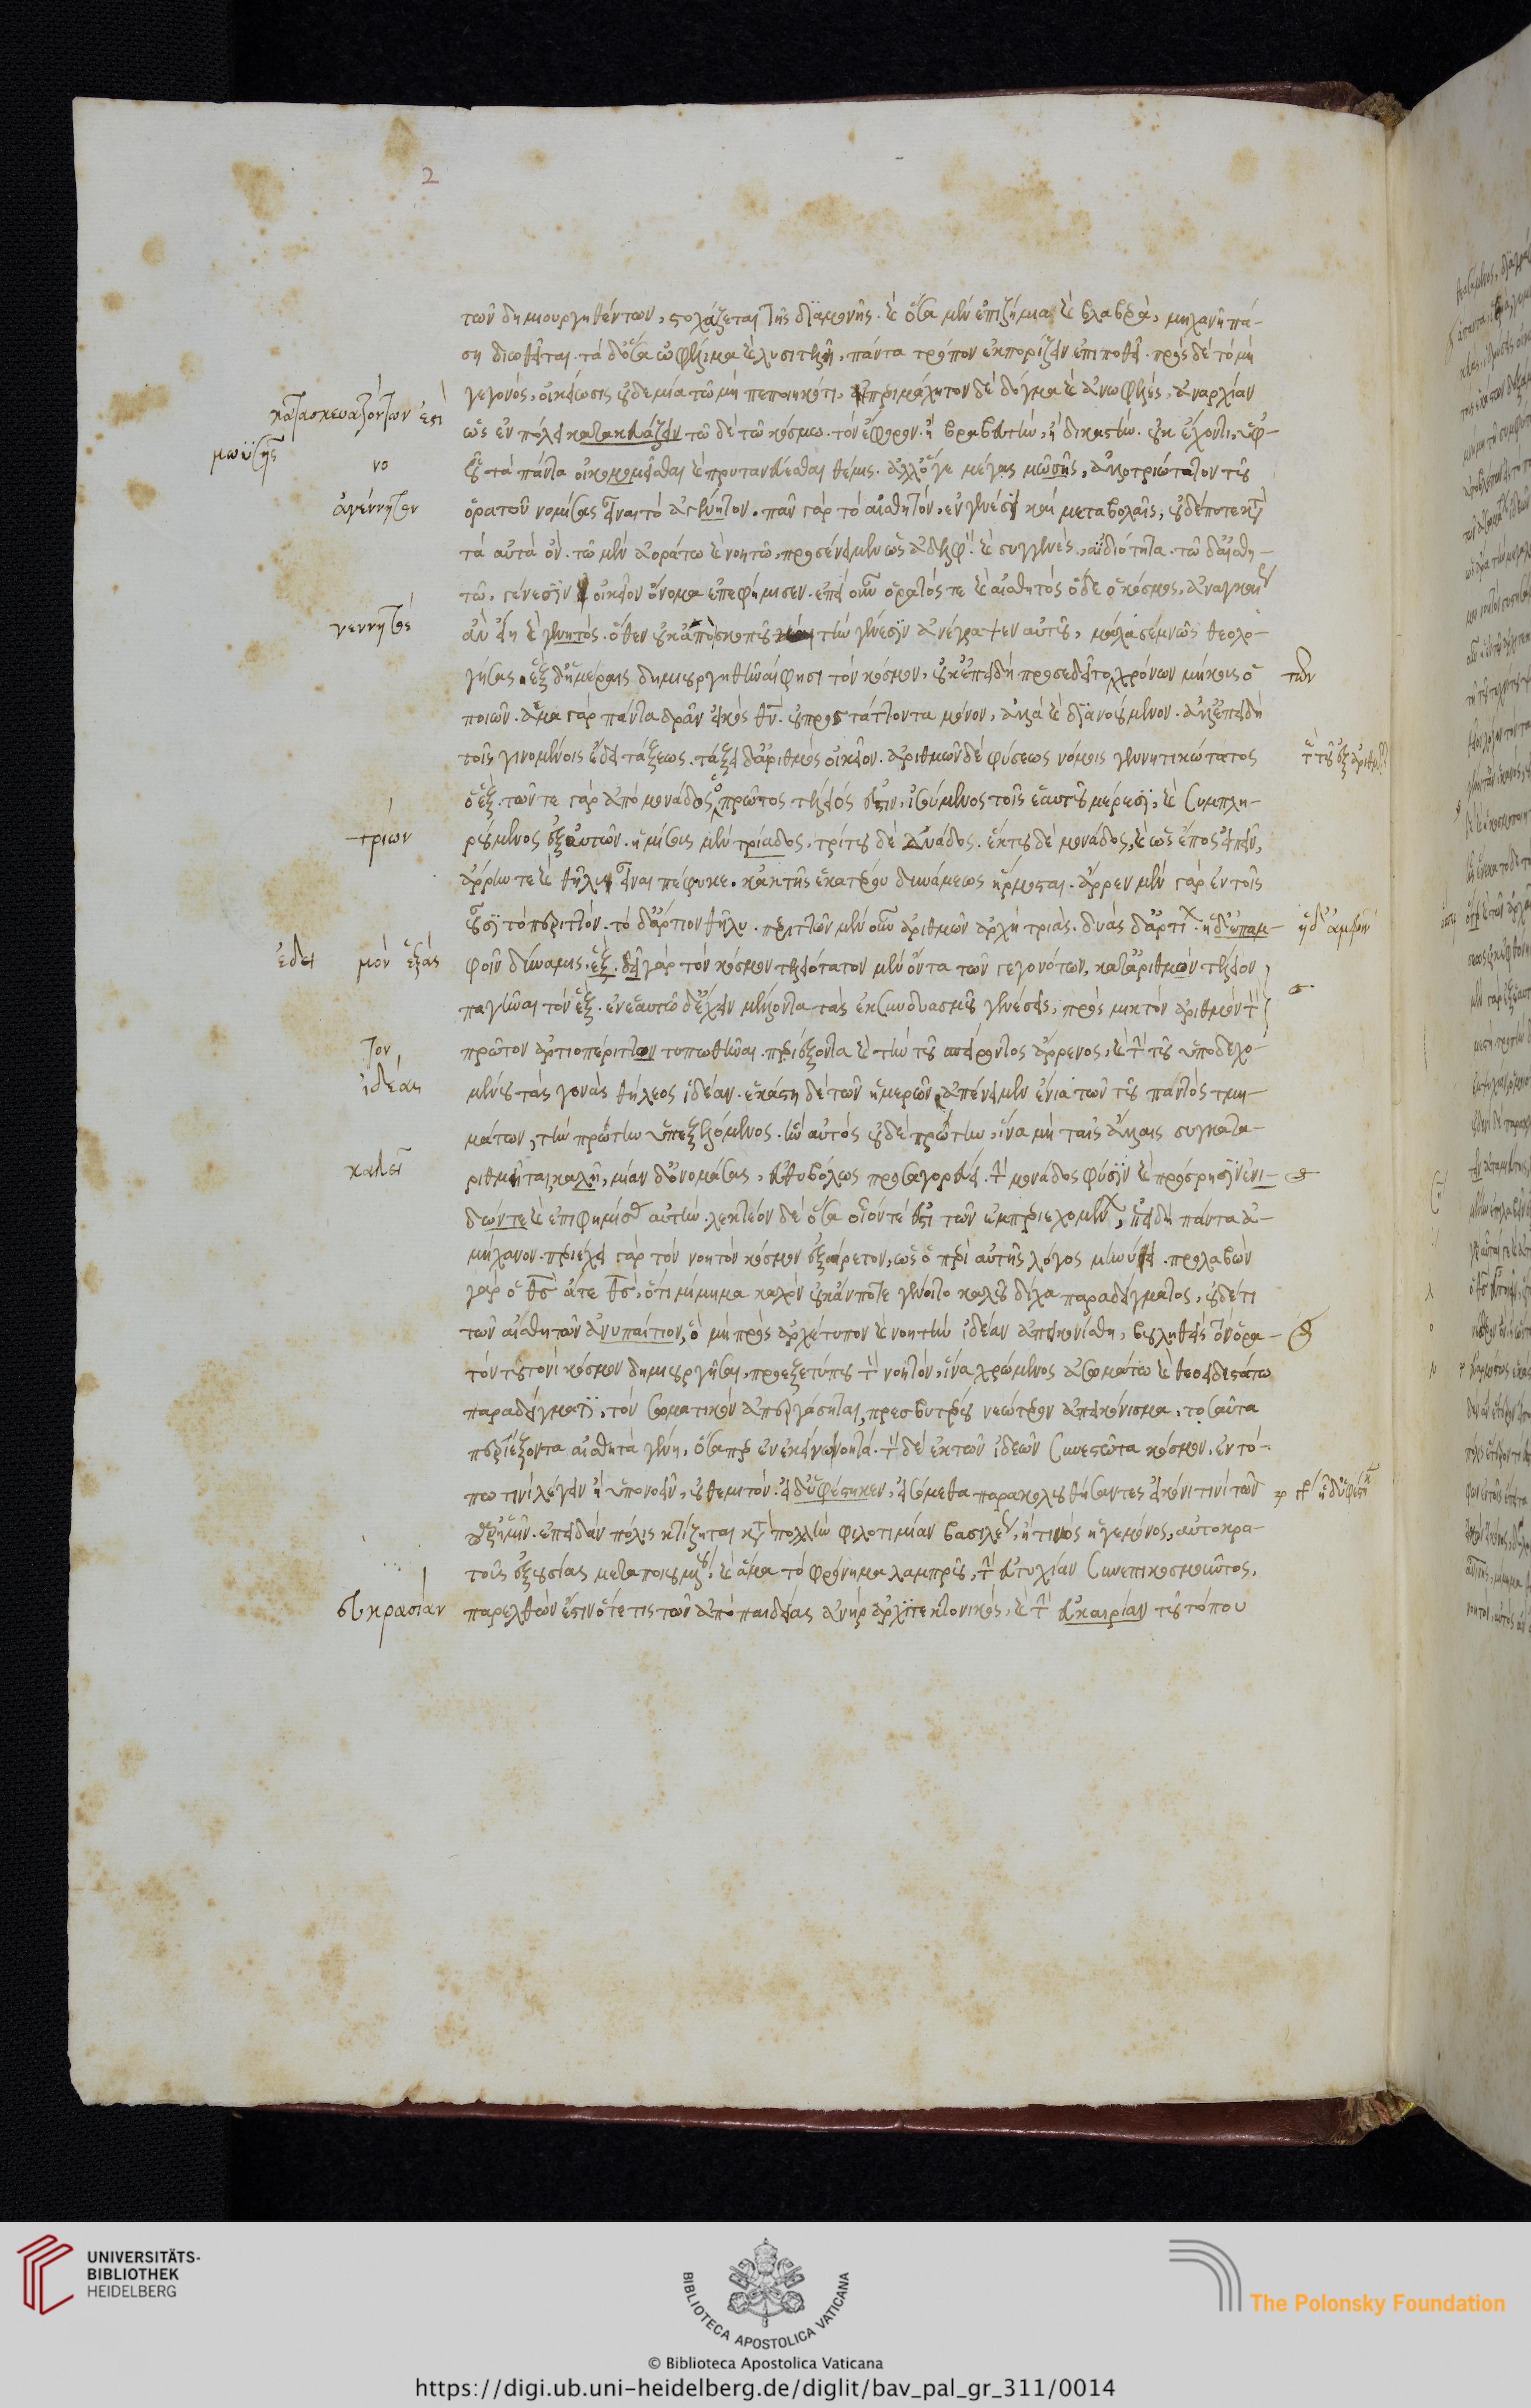 2
τῶν δημιουργηθέντων, στοχάζεται τῆς διαμονῆς. καὶ ὅσα μὲν ἐπιζήμια καὶ βλαβερὰ, μηχανῇ πά-
σῃ διωθεῖται. τὰ δ' ὅσα ὠφέλιμα καὶ λυσιτελῆ, πάντα τρόπον ἐκπορίζειν ἐπιποθεῖ. πρὸς δὲ τὸ μὴ
γεγονὸς, οἰκείωσις οὐδεμία τῶ μὴ πεποιηκότι. ἀπεριμάχητον δὲ δόγμα καὶ ἀνωφελὲς, ἀναρχίαν
κατασκευαζόντων ἐστὶ
ὡς ἐν πόλει κατακλάζειν τῶδε τῶ κόσμω. τὸν ἔφορον. ἢ βραβευτὴν, ἢ δικαστὴν. οὐκ ἔχοντι, ὑφ-
μωϋσῆς
νο
οὗ τὰ πάντα οἰκονομεῖσθαι καὶ πρυτανεύεσθαι θέμις. ἀλλ' ὅγε μέγας μωσῆς, ἀλλοτριώτατον τοῦ
ἀγέννητον
ὁρατοῦ νομίσας εἶναι τὸ ἀγένητον. πᾶν γὰρ τὸ αἰσθητὸν, ἐν γενέσει καὶ μεταβολαῖς, οὐδέποτε κατὰ
τὰ αὐτὰ ὄν. τῶ μὲν ἀοράτω καὶ νοητῶ, προσένειμεν ὡς ἀδελφὸν καὶ συγγενὲς, ἀϊδιότητα. τῶ δ' αἰσθη-
τῶ, γένεσιν οἰκεῖον ὄνομα ἐπεφήμισεν. ἐπεὶ οὖν ὁρατός τε καὶ αἰσθητὸς ὅδε ὁ κόσμος, ἀναγκαίως
γεννητὸς
ἂν εἴη καὶ γενητός. ὅθεν οὐκ ἀπὸ σκοποῦ τὴν γένεσιν ἀνέγραψεν αὐτοῦ, μάλα σεμνῶς θεολο-
γήσας. ἓξ δ' ἡμέραις δημιουργηθῆναί φησι τὸν κόσμον, οὐκ ἐπειδὴ προσεδεῖτο χρόνων μήκους ὁ
ποιῶν. ἅμα γὰρ πάντα δρᾶν εἰκὸς θν. οὐ προστάττοντα μόνον, ἀλλὰ καὶ διανοούμενον. ἀλλ' ἐπειδὴ
τοῖς γινομένοις ἔδει τάξεως. τάξει δ' ἀριθμὸς οἰκεῖον. ἀριθμῶν δὲ φύσεως νόμοις γεννητικώτατος
ὁ ἕξ. τῶν τε γὰρ ἀπὸ μονάδος ὁ πρῶτος τέλειός ἐστιν, ἰσούμενος τοῖς ἑαυτοῦ μέρεσι, καὶ συμπλη-
τριων
ρούμενος ἐξ αὐτῶν. ἡμίσους μὲν τριάδος, τρίτου δὲ δυάδος. ἕκτου δὲ μονάδος, καὶ ὡς ἔπος εἰπεῖν,
ἄρρην τε καὶ θῆλυς εἶναι πέφυκε. κἀκ τῆς ἑκατέρου δυνάμεως ἥρμοσται. ἄρρεν μὲν γὰρ ἐν τοῖς
οὖσι τὸ περιττὸν. τὸ δ' ἄρτιον θῆλυ. περιττῶν μὲν οὖν ἀριθμῶν ἀρχὴ τριάς. δυὰς δ' ἀρτίων. ἡ δ' ὑπαμ- ἡ δ' ἀμφοῖν
ἔδει μὸν ἑξὰς
φοῖν δύναμις, ἕξ. ἔδει γὰρ τὸν κόσμον τελειότατον μὲν ὄντα τῶν γεγονότων, κατ' ἀριθμὸν τέλειον
παγῆναι τὸν ἕξ. ἐν ἑαυτῶ δ' ἔχειν μέλλοντα τὰς ἐκ συνδυασμοῦ γενέσεις, πρὸς μικτὸν ἀριθμὸν τὸν
τον
πρῶτον ἀρτιοπέριττον τυπωθῆναι. περιέξοντα καὶ τὴν τοῦ σπείροντος ἄρρενος, καὶ τὴν τοῦ ὑποδεχο-
ἰδέαν
μένου τὰς γονὰς θήλεος ἰδέαν. ἑκάστη δὲ τῶν ἡμερῶν ἀπένειμεν ἔνια τῶν τοῦ παντὸς τμη-
μάτων, τὴν πρώτην ὑπεξελόμενος. ἣν αὐτὸς οὐδὲ πρώτην, ἵνα μὴ ταῖς ἄλλαις συγκατα-
καλεῖ
ριθμῆται, καλῆ, μίαν δ' ὀνομάσας, εὐθυβόλως προσαγορεύει. τὴν μονάδος φύσιν καὶ πρόσρησιν ἐνι-
δών τε καὶ ἐπιφημίσας αὐτὴν. λεκτέον δὲ ὅσα οἷόν τέ ἐστι τῶν ἐμπεριεχομένων, ἐπειδὴ πάντα ἀ-
μήχανον. περιέχει γὰρ τὸν νοητὸν κόσμον ἐξαίρετον, ὡς ὁ περὶ αὐτῆς λόγος μηνύει. προλαβὼν
γὰρ ὁ θς ἅτε θς, ὅτι μίμημα καλὸν οὐκ ἄν ποτε γένοιτο καλοῦ δίχα παραδείγματος, οὐδέ τι
τῶν αἰσθητῶν ἀνυπαίτιον, ὃ μὴ πρὸς ἀρχέτυπον καὶ νοητὴν ἰδέαν ἀπεικονίσθη, βουληθεὶς τὸν ὁρα-
τὸν τουτονὶ κόσμον δημιουργῆσαι, προεξετύπου τὸν νοητὸν, ἵνα χρώμενος ἀσωμάτω καὶ θεοειδεστάτω
παραδείγματι, τὸν σωματικὸν ἀπεργάσηται, πρεσβυτέρου νεώτερον ἀπεικόνισμα, τοσαῦτα
περιέξοντα αἰσθητὰ γένη, ὅσαπερ ἐν ἐκείνω νοητά. τὸν δὲ ἐκ τῶν ἰδεῶν συνεστῶτα κόσμον, ἐν τό-
πω τινὶ λέγειν ἢ ὑπονοεῖν, οὐ θεμιτόν. εἰ δ' ὑφέστηκεν, εἰσόμεθα παρακολουθήσαντες εἰκόνι τινὶ τῶν
παρ' ἡμῖν. ἐπειδὰν πόλις κτίζηται κατὰ πολλὴν φιλοτιμίαν βασιλέως, ἤ τινος ἡγεμόνος, αὐτοκρα-
τοῦς ἐξουσίας μεταποιουμένου, καὶ ἅμα τὸ φρόνημα λαμπροῦ, τὴν εὐτυχίαν συνεπικοσμοῦντος,
εὐκρασίαν
παρελθὼν ἔστιν ὅτε τις τῶν ἀπὸ παιδείας ἀνὴρ ἀρχιτεκτονικὸς, καὶ τὴν εὐκαιρίαν τοῦ τόπου
UNIVERSITÄTS-
BIBLIOTHEK
HEIDELBERG
BIBLIOTECA APOSTOLICA VATICANA
The Polonsky Foundation
© Biblioteca Apostolica Vaticana
https://digi.ub.uni-heidelberg.de/diglit/bav_pal_gr_311/0014